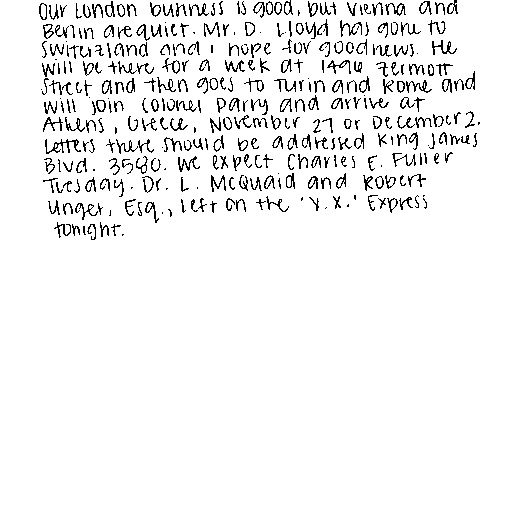 Our London business is good, but Vienna and
Berlin are quiet. Mr. D. Lloyd has gone to
Switerzland and I hope for good news. He
will be there for a week at 1496 Zermott
Street and then goes to Turin and Rome and
will join Colonel Parry and arrive at
Athens, Greece, November 27 or December 2.
Letters there should be addressed King James
Blvd. 3580. We expect Charles E. Fuller
Tuesday. Dr. L. McQuaid and Robert
Unger, Esq., left on the 'Y.X.' Express
tonight.